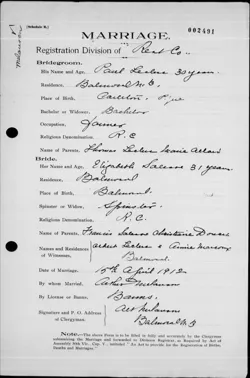 (Schedule B.)
002491
MARRIAGE.
Registration Division of Rest Co.
Bridegroom.
His Name and Age, Paul Leclerc 30 years
Residence, Balmoral N.B.
Place of Birth, Carleton Que
Bachelor or Widower, Bachelor
Occupation, Farmer
Religious Denomination, R.C.
Name of Parents, Thomas Leclerc Marie Allard
Bride.
Her Name and Age, Elizabeth 31 years
Residence, Balmoral
Place of Birth, Balmoral
Spinster or Widow, Spinster
Religious Denomination, R.C.
Name of Parents, Francis
Names and Residences of Witnesses, Albert Leclerc & Annie
Balmoral
Date of Marriage, 15th April 1912
By whom Married, Arthur Melanson
By License or Banns, Banns.
Signature and P. O. Address of Clergyman, Art Melanson
Balmoral N.B
Note.—The above Form is to be filled in fully and accurately by the Clergyman
solemnizing the Marriage and forwarded to Division Registrar, as Required by Act of
Assembly "An Act to provide for the Registration of Births,
Deaths and Marriages."